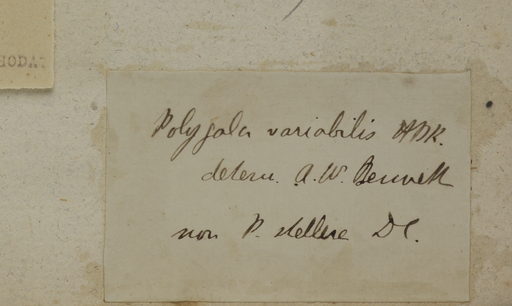 Polygala variabilis HBK.
determ. A. W. Bennett
non P. stellera DC.